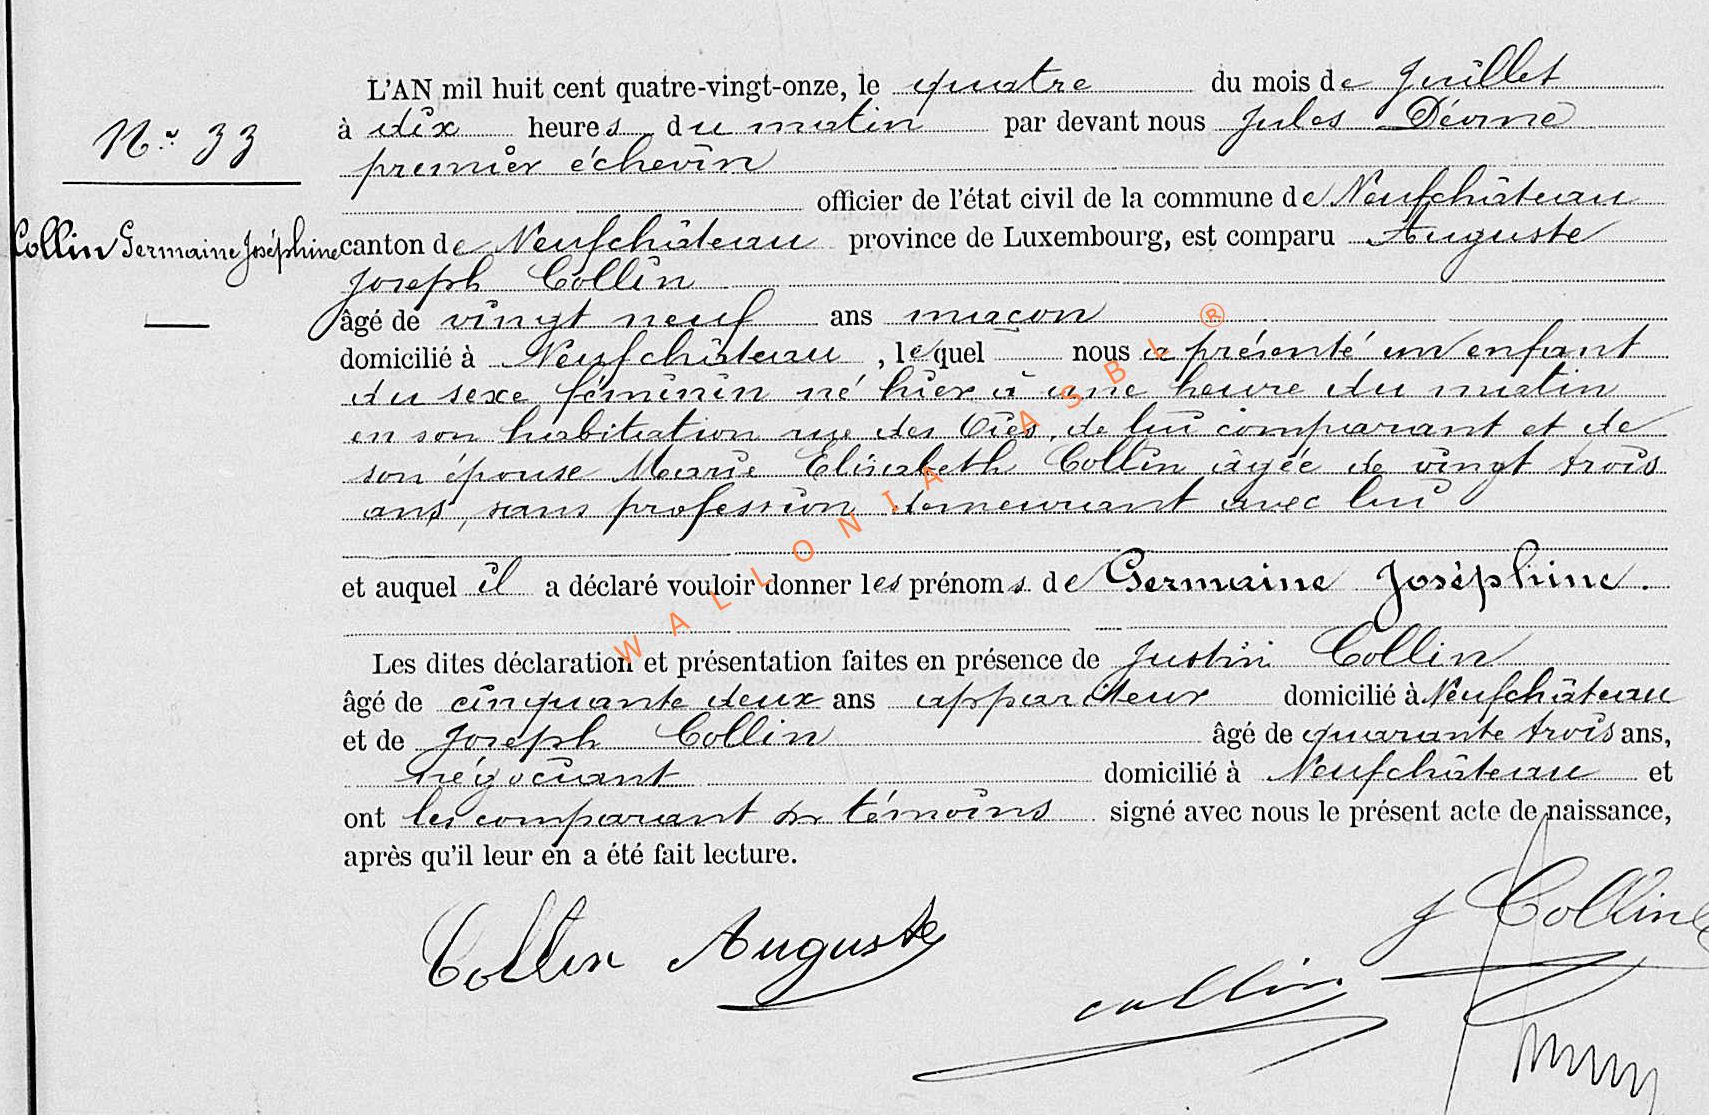 L'AN mil huit cent quatre-vingt-onze, le quatre du mois de Juillet
N° 33
à dix heures du matin par devant nous Jules
premier échevin
officier de l'état civil de la commune de Neufchâteau
Collin Germaine Joséphine
canton de Neufchâteau province de Luxembourg, est comparu Auguste
Joseph Collin
âgé de vingt neuf ans maçon
domicilié à Neufchâteau, lequel nous a présenté un enfant
du sexe féminin né hier à une heure du matin
en son habitation rue des, de lui comparant et de
son épouse Marie Elisabeth Collin âgée de vingt trois
ans, sans profession demeurant avec lui
et auquel il a déclaré vouloir donner les prénoms de Germaine Joséphine.
Les dites déclaration et présentation faites en présence de Justin Collin
âgé de cinquante deux ans appariteur domicilié à Neufchâteau
et de Joseph Collin âgé de quarante trois ans,
négociant domicilié à Neufchâteau et
ont les comparant et témoins signé avec nous le présent acte de naissance,
après qu'il leur en a été fait lecture.
Collin Auguste
J Collin
Collin
WALLONIA ASBL ®